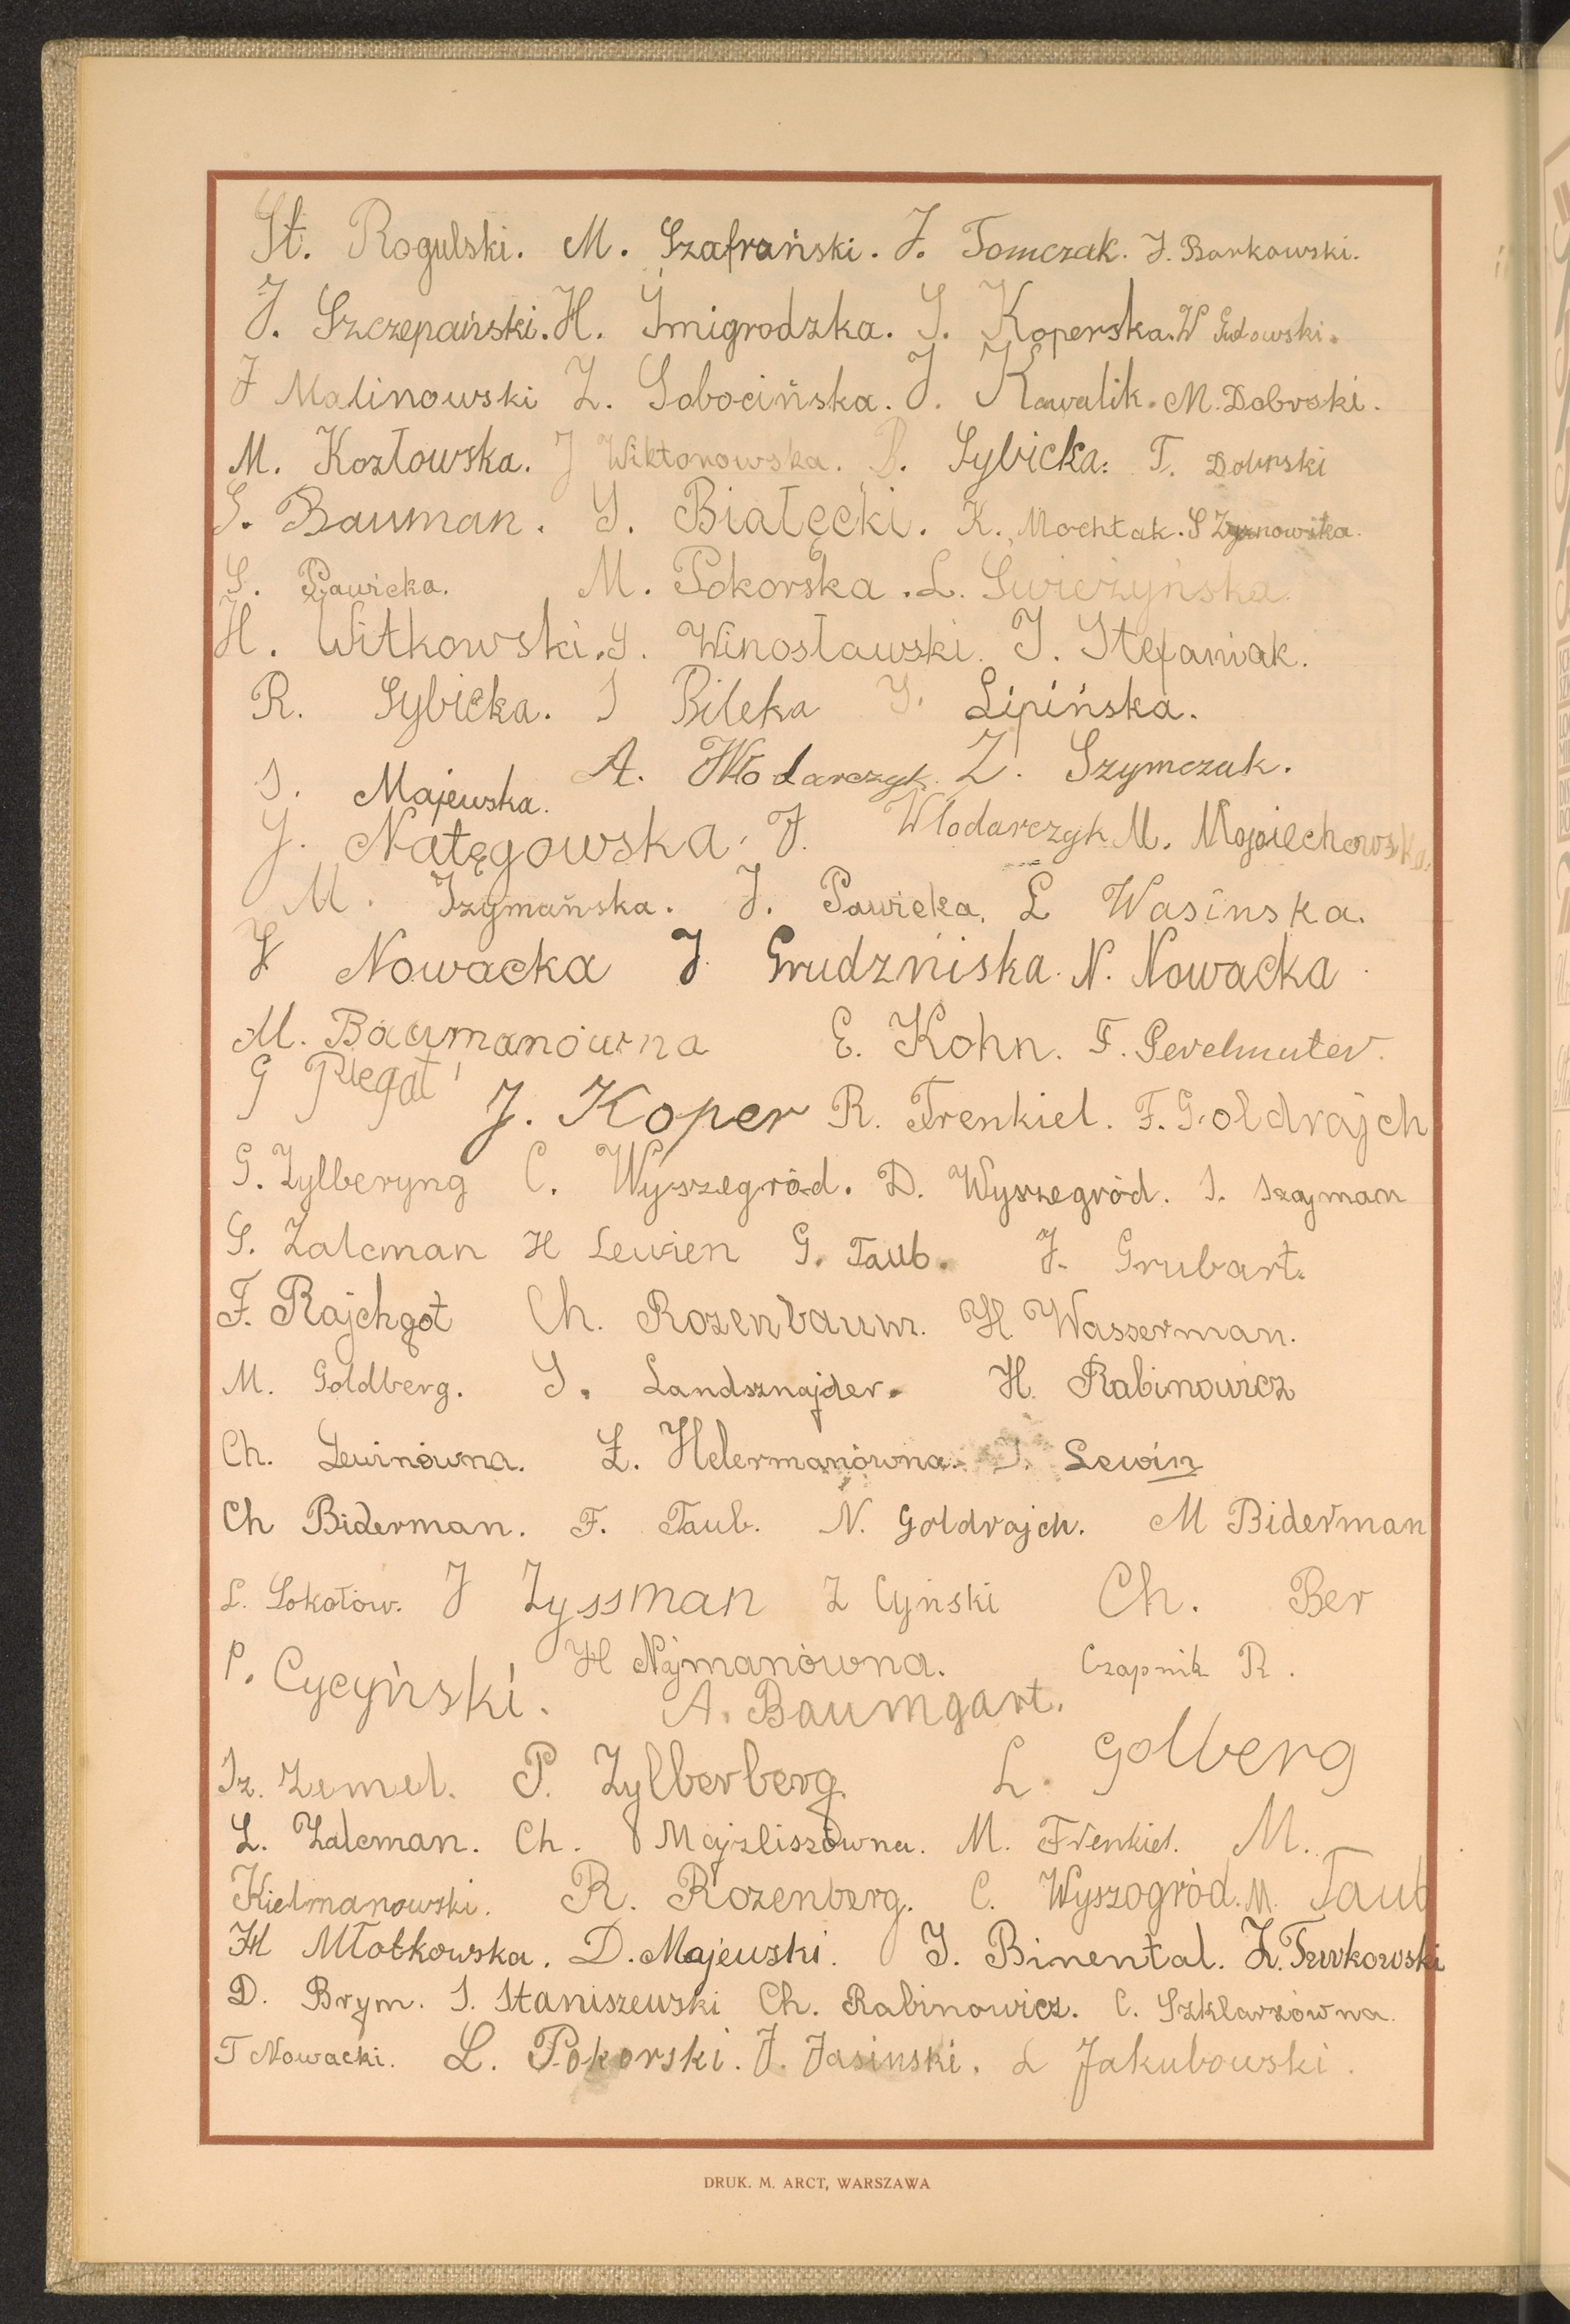 St. Rogulski. M. Szafrański. J. Tomczak. J. Borkowski.
J. Szczepański. H. Śmigrodzka. S. Koperska. W
J Malinowski Z. Sobocińska. J. Kowalik. M. Dobrski.
M. Kozłowska. J Wiktorowska. B. Sybicka. T. Dobrski
S. Bauman. S. Białęcki. K. Mochtak. S
S. Pawicka. M. Pokorska. L. Świeżyńska.
H. Witkowski. S. Winosławski. J. Stefaniak.
R. Sybicka. S Bilska S. Lipińska.
S. Majewska. A. Włodarczyk. Z. Szymczak.
J. Natęgowska. J. Włodarczyk M. Wojciechowska.
M. Szymańska. J. Pawicka. L Wasinska.
Nowacka J. Grudzńiska. N. Nowacka.
M. Baumanówna E. Kohn. F. Perelmuter.
G
J. Koper R. Frenkiel. F. Goldrajch
G. Zylberyng C. Wyszegród. D. Wyszegród. S. Szajman
S. Zalcman H Lewien G. Taub. J. Grubart.
F. Rajchgot Ch. Rozenbaum. H. Wasserman.
M. Goldberg. S. Landsznajder. H. Rabinowicz
Ch. Lewinówna. Ł. Helermanówna. J. Lewin
Ch Biderman. F. Taub. N. Goldrajch. M Biderman
L. Sokołow. J Zyssman Z Cyński Ch. Ber
P. Cycyński. H Najmanówna. Czapnik R.
A. Baumgart.
Sz. Zemel. P. Zylberberg. L. Golberg
L. Zalcman. Ch. Majzliszówna. M. Frenkiel. M.
Kielmanowski. R. Rozenberg. C. Wyszogród. M. Taub
H Młotkowska. D. Majewski. J. Binental. Z.
D. Brym. S. Staniszewski Ch. Rabinowicz. C. Szklarzówna.
T Nowacki. L. Pokorski. J. Jasinski. L Jakubowski.
DRUK. M. ARCT, WARSZAWA